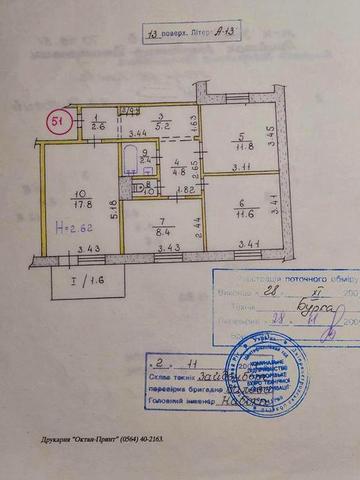 13 поверх. Літер А-13
51
1
2.6
3
5.2
3.44
1.63
5
11.8
3.45
3.11
9
2.4
4
4.8
2.65
8
1.0
1.82
10
17.8
H=2.62
5.18
3.43
7
8.4
3.43
2.44
6
11.6
3.41
3.41
I / 1.6
поточного обміру
28 XI
Бурка
28 11
2 11
Склав технік
перевірив бригадир
Головний інженер
Друкарня "Октан-Принт" (0564) 40-2163.